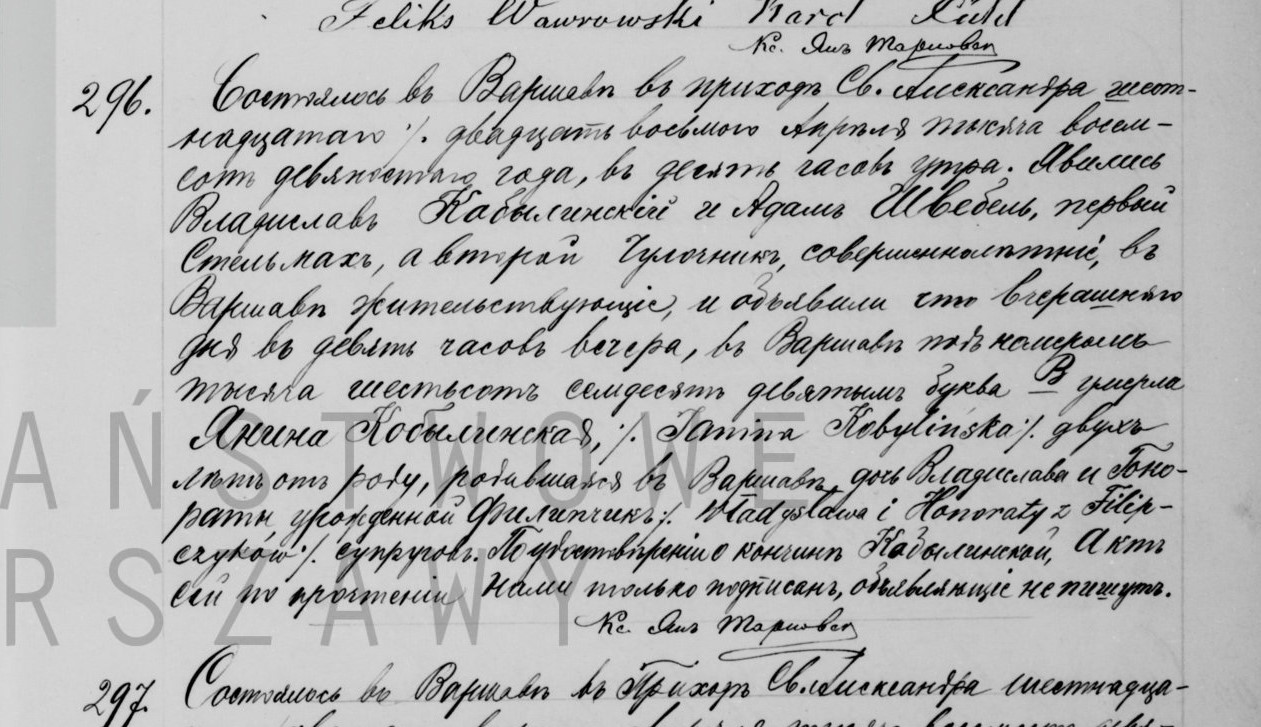 Feliks Wawrowski Karol
Кс. Янъ Тарновск
296. Состоялось въ Варшавѣ въ приходѣ Св. Александра шест-
надцатаго ·/. двадцать восьмого Апрѣля тысяча восем-
сотъ девяностаго года, въ десять часовъ утра. Явились
Владиславъ Кобылинскій и Адамъ Швебель, первый
Стельмахъ, а второй Чулочникъ, совершеннолѣтніе, въ
Варшавѣ жительствующіе, и объявили что вчерашняго
дня въ девять часовъ вечера, въ Варшавѣ подъ номеромъ
тысяча шестьсотъ семдесять девятымъ буква В умерла
Янина Кобылинская, ·/. Janina Kobylińska ·/. двухъ
лѣтъ отъ роду, родившаяся въ Варшавѣ, дочь Владислава и Гоно-
раты урожденной Филипчикъ ·/. Władysława i Honoraty z Filip-
czyków ·/. супруговъ. По удостовѣреніи о кончинѣ Кобылинской, Актъ
сей по прочтеніи Нами только подписанъ, объявляющіе не пишутъ.
Кс. Янъ Тарновск
297. Состоялось въ Варшавѣ въ Приходѣ Св. Александра шестнадца-
PAŃSTWOWE
WARSZAWY